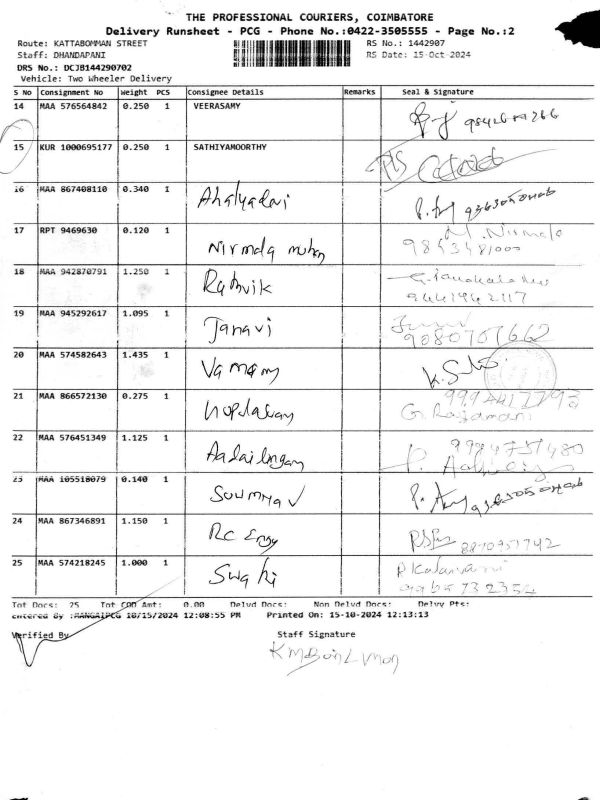 THE PROFESSIONAL COURIERS, COIMBATORE
Delivery Runsheet - PCG - Phone No.:0422-3505555 - Page No.:2
Route: KATTABOMMAN STREET RS No.: 1442907
Staff: DHANDAPANI RS Date: 15-Oct-2024
DRS No.: DCJB144290702
Vehicle: Two Wheeler Delivery
S No Consignment No Weight PCS Consignee Details Remarks Seal & Signature
14 MAA 576564842 0.250 1 VEERASAMY
15 KUR 1000695177 0.250 1 SATHIYAMOORTHY
16 MAA 867408110 0.340 1 Ahalyadevi
17 RPT 9469630 0.120 1 Nirmala M. Nirmala
18 MAA 942870791 1.250 1 Rathvik
9441942117
19 MAA 945292617 1.095 1 Janavi
9080707662
20 MAA 574582643 1.435 1
21 MAA 866572130 0.275 1 9994417793
G. Rajamani
22 MAA 576451349 1.125 1 9984751480
23 MAA 105518079 0.140 1 Soumya V
24 MAA 867346891 1.150 1 RC Energy 8870951742
25 MAA 574218245 1.000 1 Swathi
9965732354
Tot Docs: 25 Tot COD Amt: 0.00 Delvd Docs: Non Delvd Docs: Delvy Pts:
Entered By :MANGAIPCG 10/15/2024 12:08:55 PM Printed On: 15-10-2024 12:13:13
Verified By Staff Signature